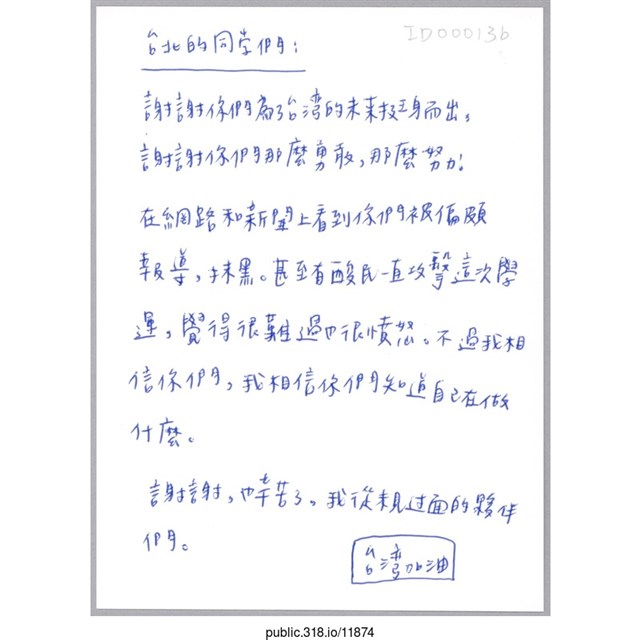 ID000136
台北的同学們：
謝謝你們為了台湾的未来挺身而出，
謝謝你們那麼勇敢，那麼努力！
在網路和新聞上看到你們被偏頗
報導，抹黑。甚至有酸民一直攻擊這次學
運，覺得很難過也很憤怒。不過我相
信你們，我相信你們知道自己在做
什麼。
謝謝，也辛苦了，我從未見过面的夥伴
們。
台湾加油
public.318.io/11874